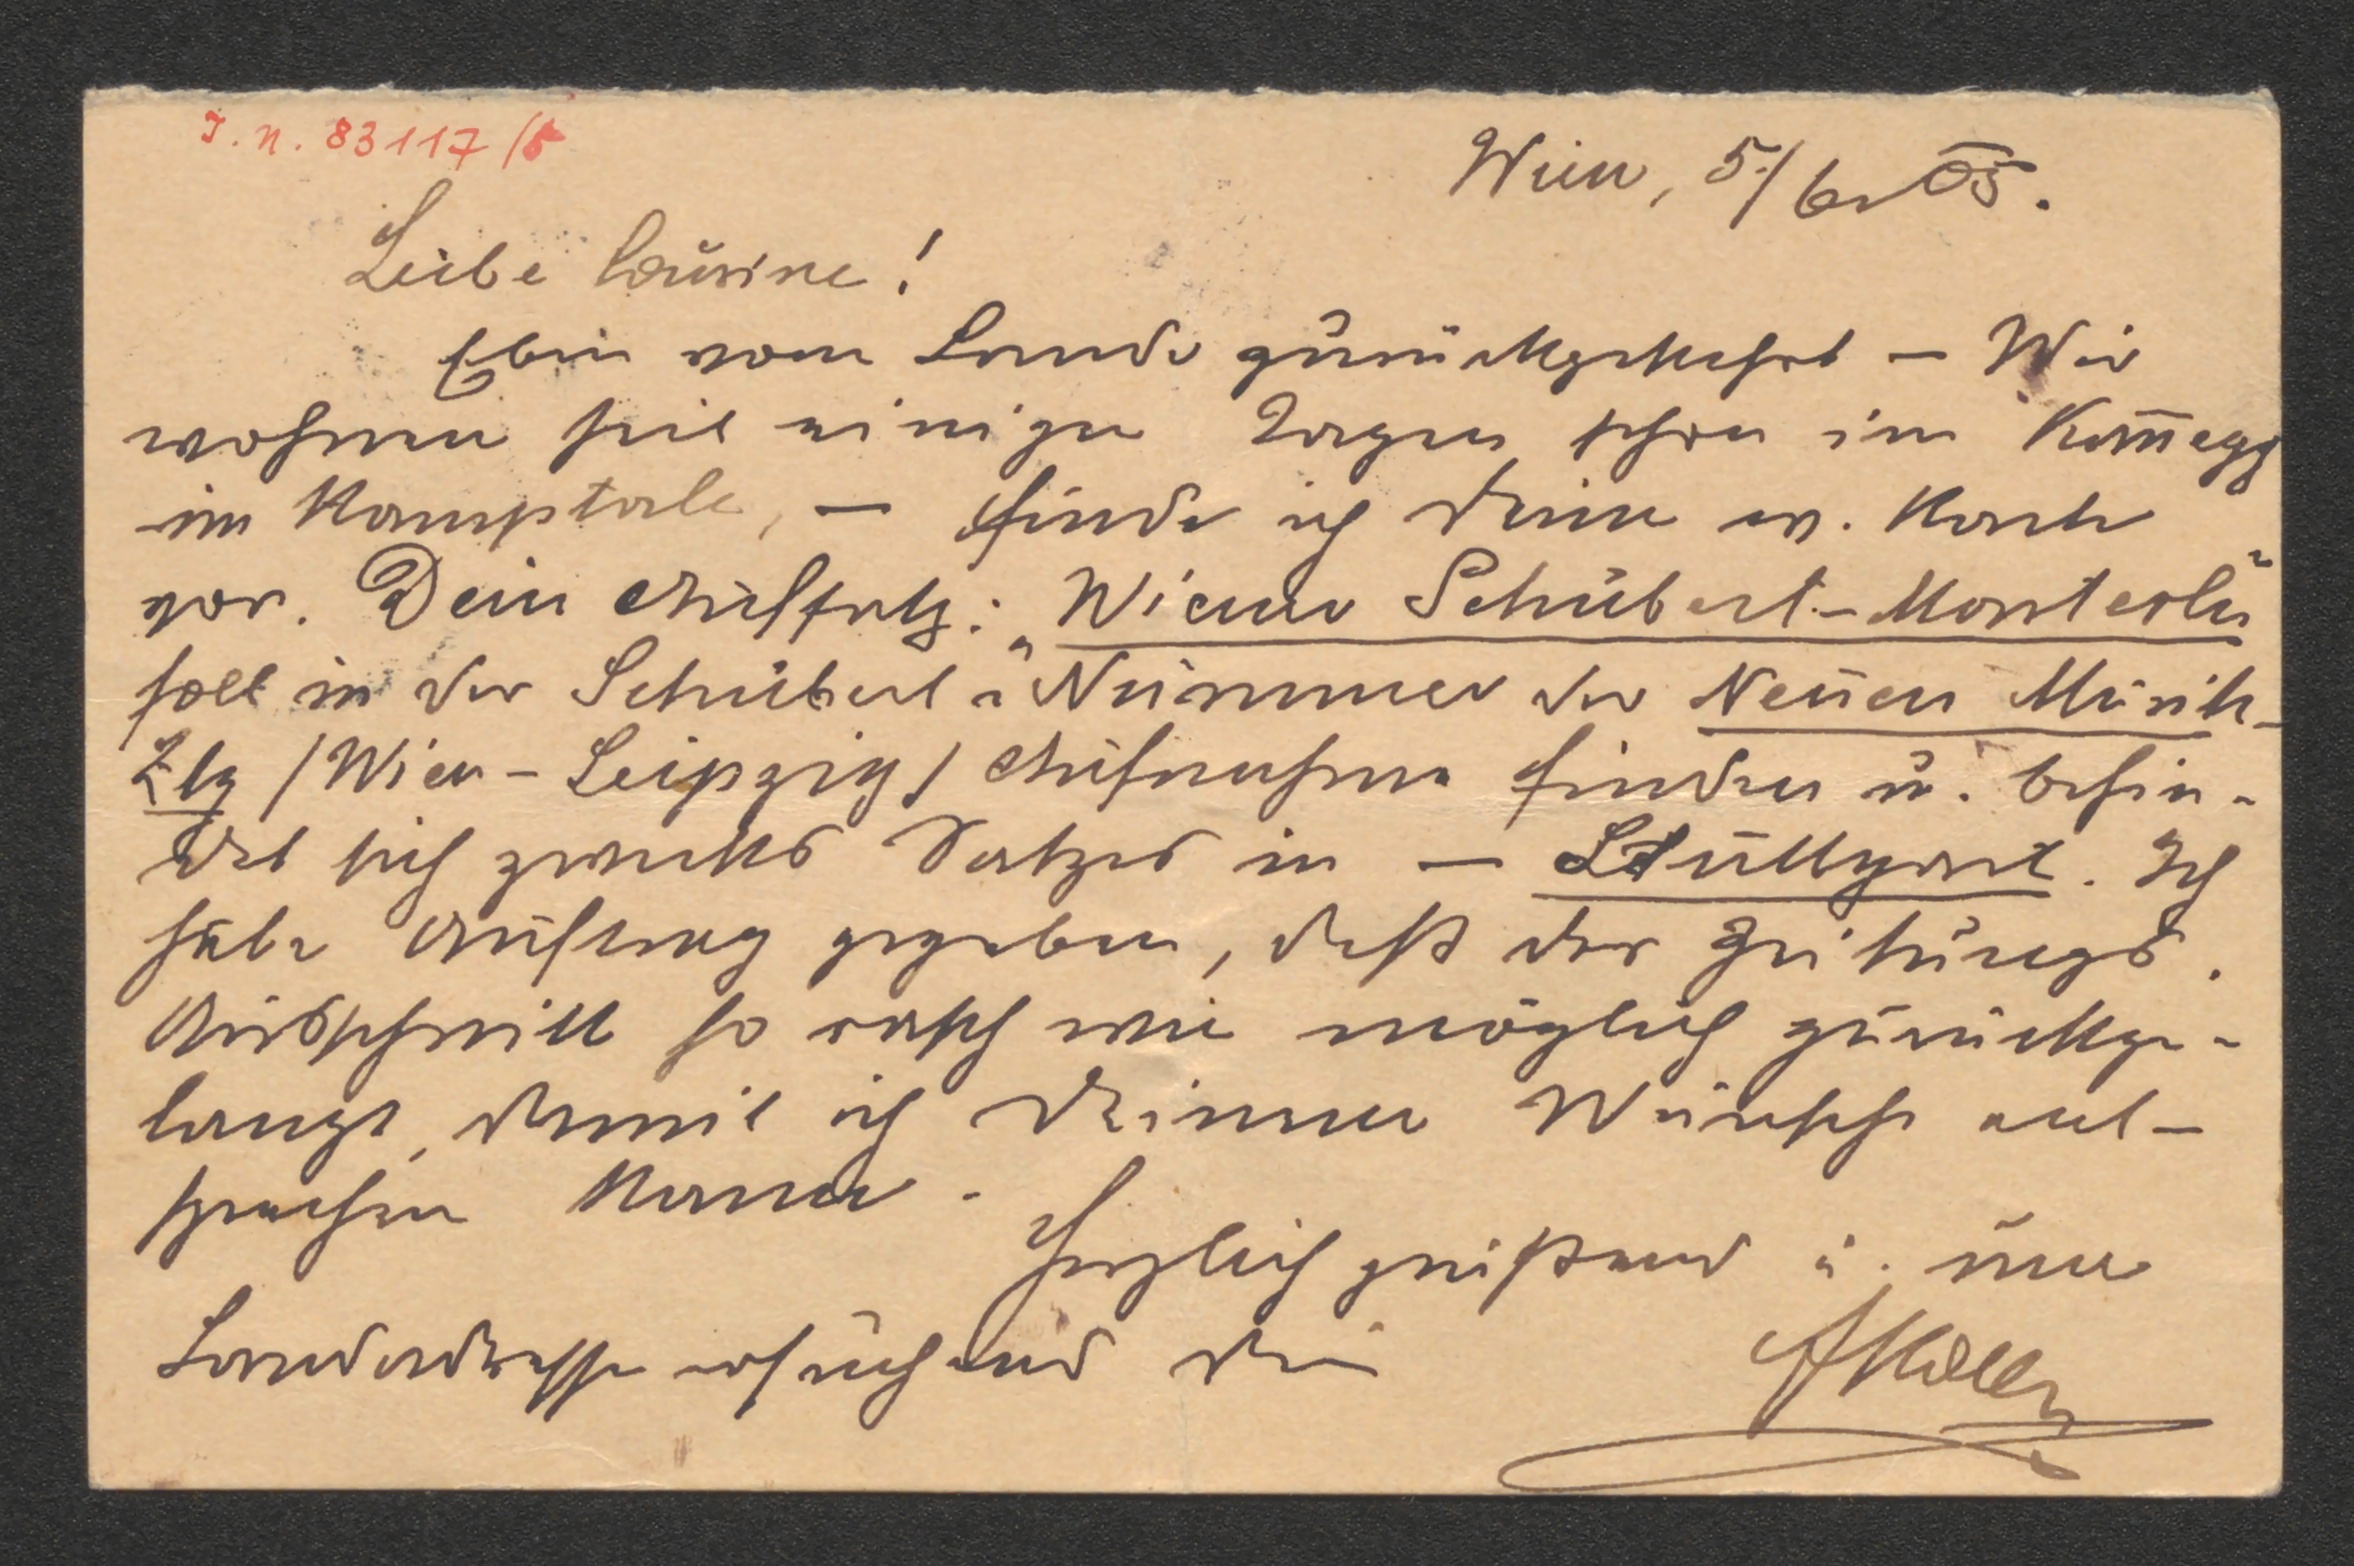 I. N. 83117/5
Wien, 5./6. 05.
Liebe Cousine!
Eben vom Lande zurückgekehrt – Wir
wohnen seit einigen Tagen schon in Kam̅egg
im Kamptale, – finde ich Deine w. Karte
vor. Dein Aufsatz: „Wiener Schubert-Monterln“
soll in der Schubert-Nummer der Neuen Musik-
Ztg /Wien-Leipzig/ Aufnahme finden u. befin-
det sich zwecks Satzes in – Stuttgart. Ich
habe Auftrag gegeben, daß der Zeitungs-
Ausschnitt so rasch wie möglich zurückge-
langt, damit ich Deinem Wunsche ent-
sprechen kann.
Herzlich grüßend u. um
Landadresse ersuchend Dein